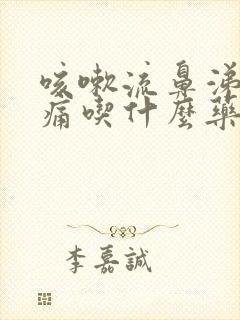 咳嗽流鼻涕
痛喫什麼藥
李嘉誠